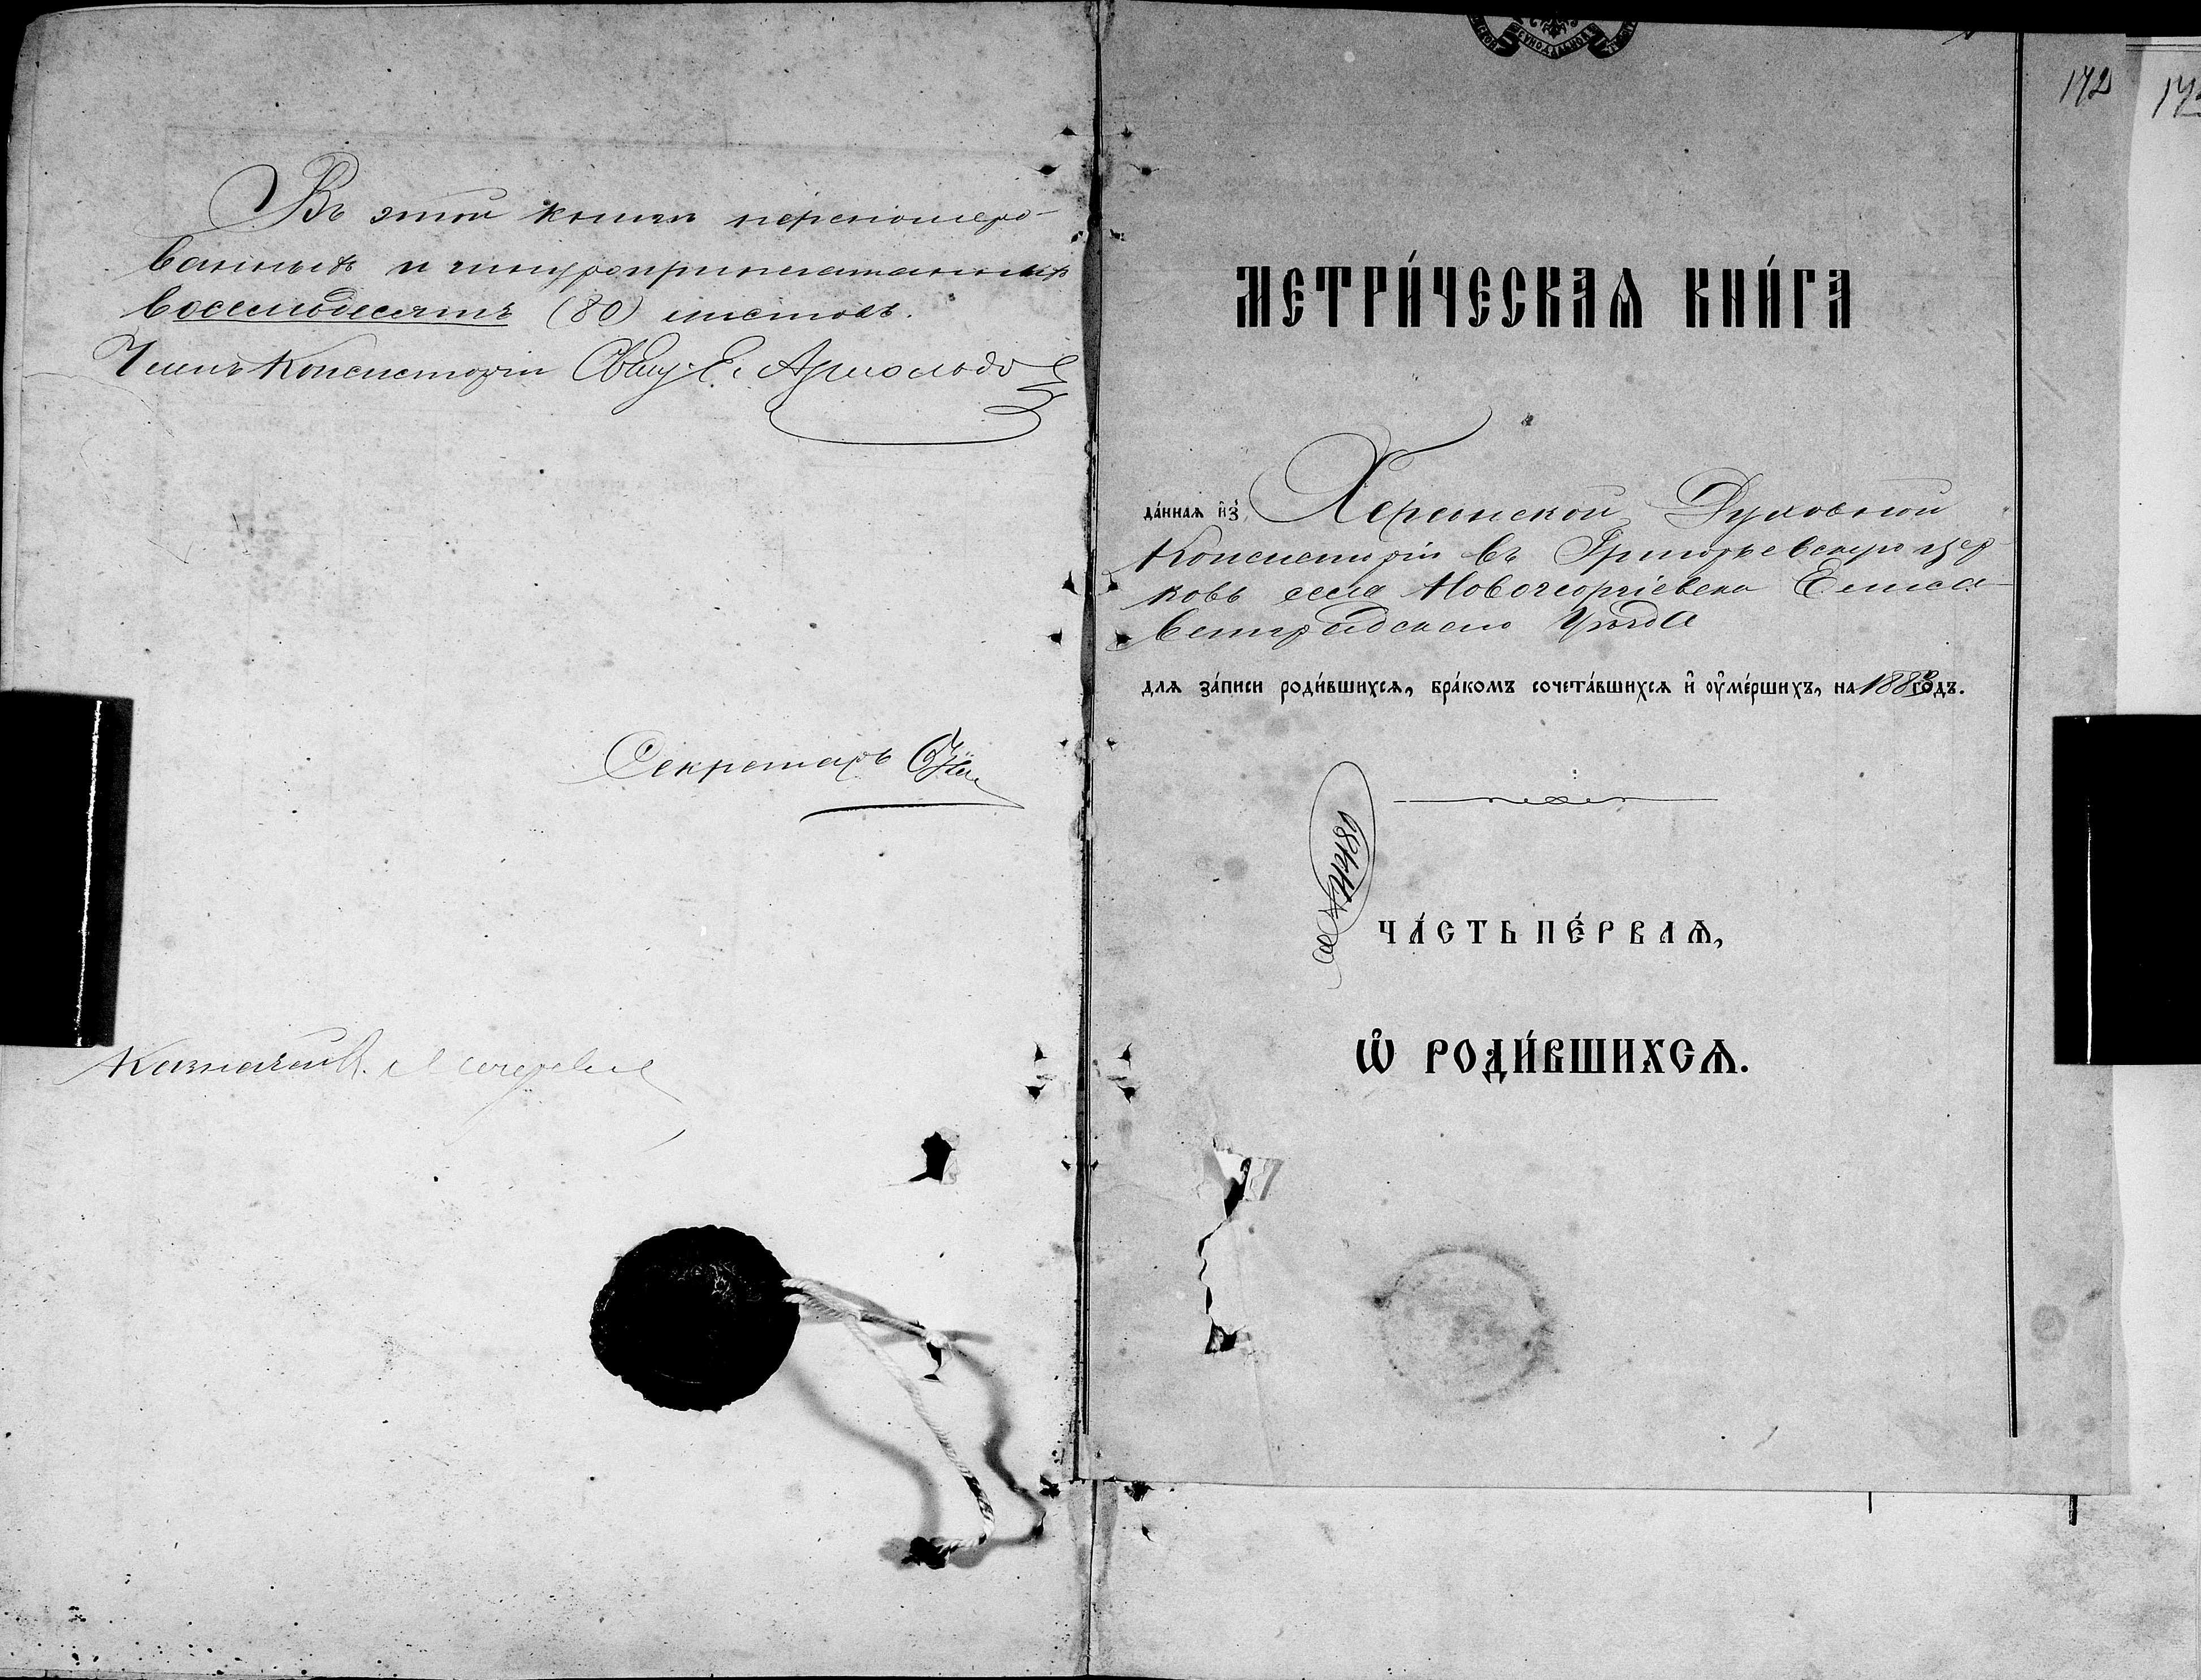 Въ этой книгѣ перенумеро-
ванныхъ и шнуроприпечатанныхъ
восемьдесятъ (80) листовъ.
Членъ Консисторіи Свящ. Е. Арнольдо
Секретарь
Казначей
172
МЕТРИ́ЧЕСКАѦ КНИ́ГА
да́ннаѧ и҆з̾ Херсонской Духовной
Консисторіи въ Григорьевскую цер-
ковь села Новогеоргіевска Елиса-
ветградскаго Уѣзда
для за́писи роди́вшихсѧ, бра́комъ сочета́вшихсѧ и҆ ᲂу҆ме́ршихъ, на 1883 го́дъ.
ЧА́СТЬ ПЕ́РВАѦ,
Ѽ РОДИ́ВШИХСѦ.